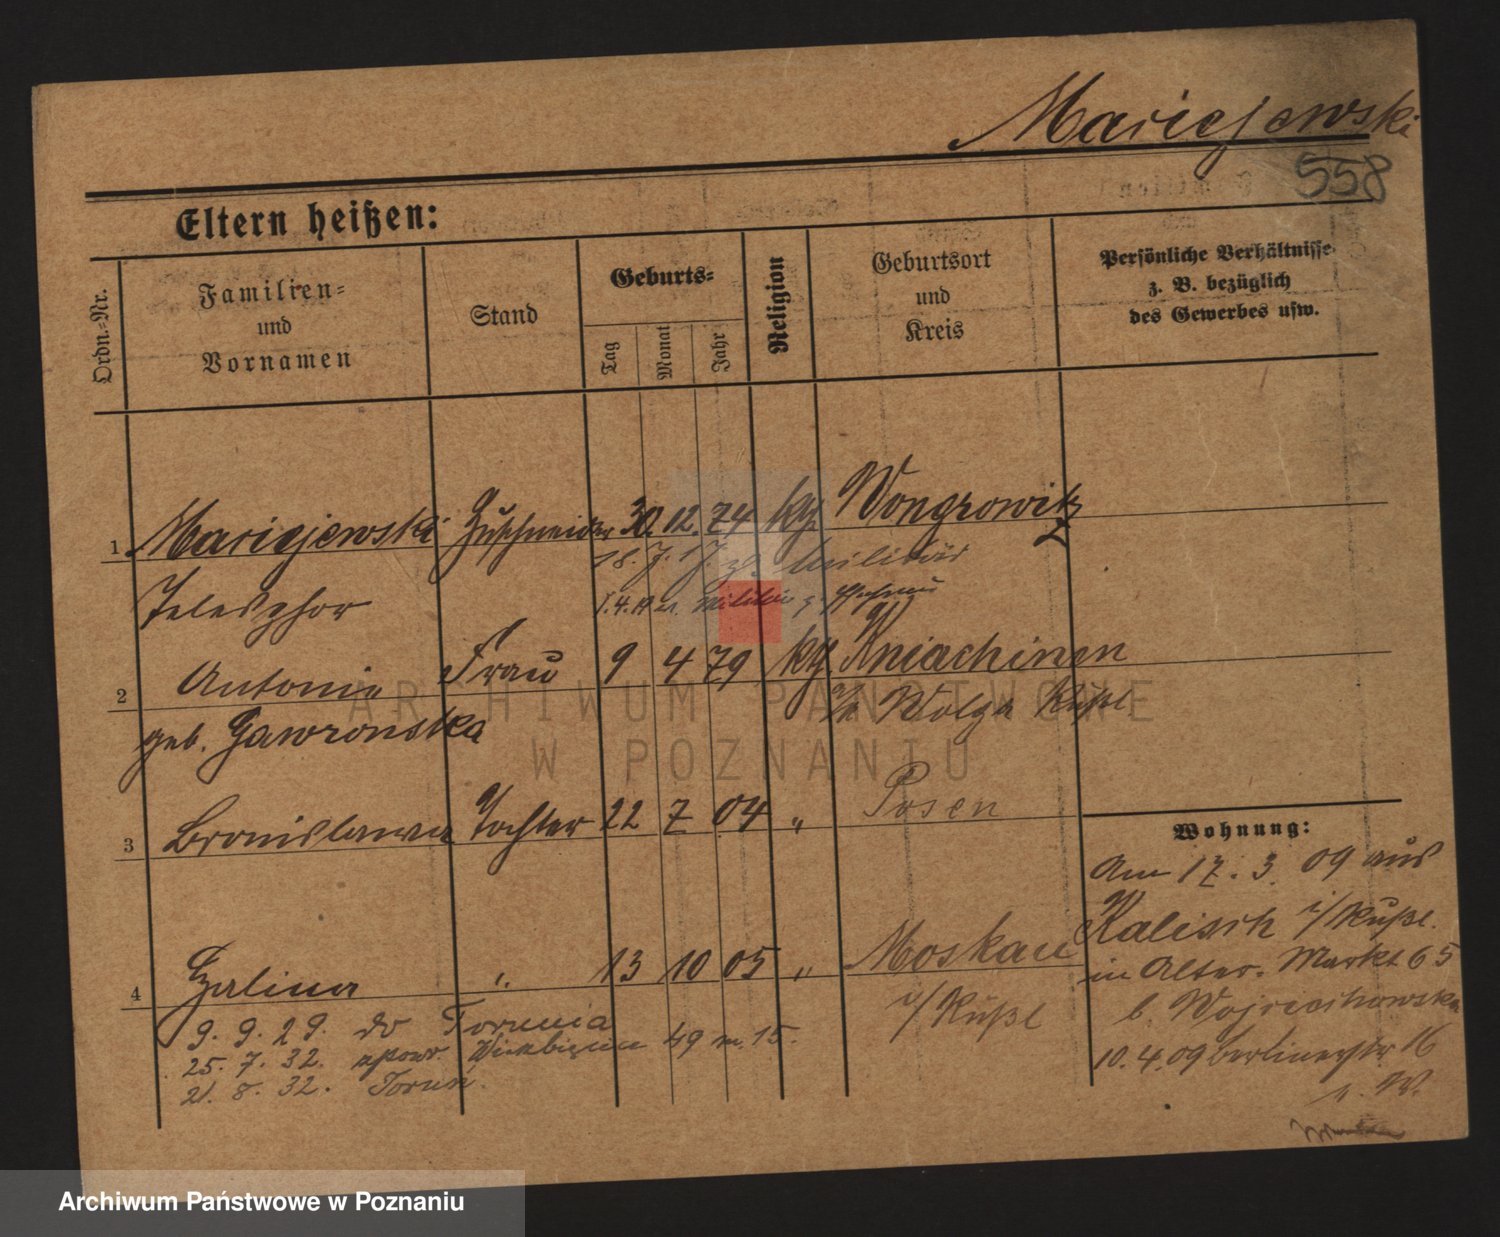 Maciejewski
558
Eltern heißen:
Ordn.-Nr.
Familien-
und
Vornamen
Stand
Geburts-
Tag
Monat
Jahr
Religion
Geburtsort
und
Kreis
Persönliche Verhältnisse
z. B. bezüglich
des Gewerbes usw.
1 Maciejewski Zuschneider 30. 12. 74 kth Wongrowitz
18. 7. 17. z. Militär
Telesphor
1.4.19 v. Militär z.
2 Antonie Frau 9 4 79 kth Kniachinen
geb. Gawronska
a/d Wolga Rußl
3 Bronislawa Tochter 22 7 04 " Posen
4 Halina " 13 10 05 " Moskau
i/Rußl
9. 9. 29. do Torunia
25. 7. 32. 49 m. 15.
21. 8. 32. Toruń.
Wohnung:
Am 17. 3. 09 aus
Kalisch i/Rußl.
in Alter. Markt 65
b. Wojciechowska
10.4.09 Berlinerstr 16
ARCHIWUM PAŃSTWOWE
W POZNANIU
Archiwum Państwowe w Poznaniu